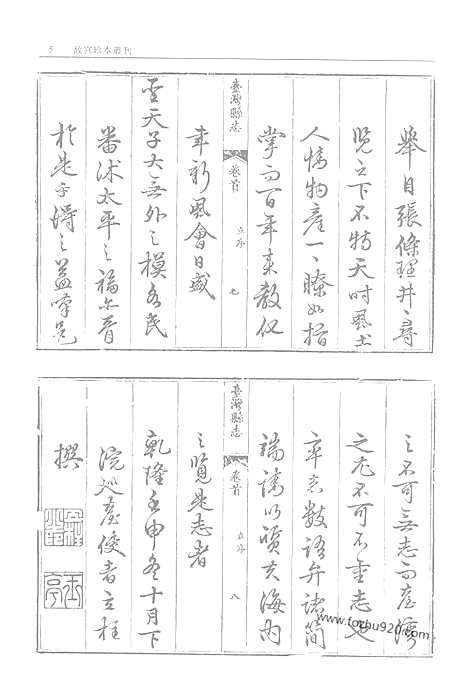 5　故宮珍本叢刊
舉目張條理井々尋
覽之下不特天時風土
人情物產一一瞭如指
掌而百年來教化
臺灣縣志
卷首
立序
七
年新風會日盛
聖天子大無外之模為民
番沐太平之福亦胥
於是乎得之益嘆邑
之不可無志而臺灣
之尤不可不重志也
率書數語弁諸簡
端請以質諸海內
臺灣縣志
卷首
立序
八
之覽是志者
乾隆壬申冬十月下
浣巡臺使者立柱
撰
www.tczbu920.com